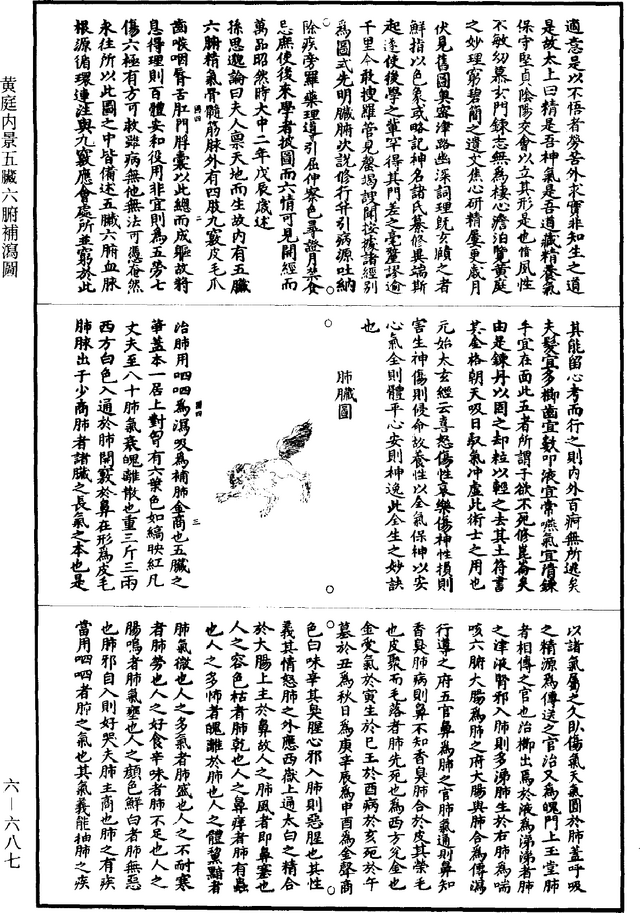 適意是以不悟者勞苦外求實非知生之道
是故太上曰精是吾神氣是吾道藏精養氣
保守堅貞陰陽交會以立其形是也愔夙性
不敏幼慕玄門鍊志無為棲心澹泊覽黃庭
之妙理窮碧簡之遺文焦心研精屢更歲月
伏見舊圖奧密津路幽深詞理既玄賾之者
鮮指以色象或略記神名諸氏纂修異端斯
起遂使後學之輩罕得其門差之毫釐謬逾
千里今敢搜羅管見罄竭謏聞按據諸經別
為圖式先明臟腑次說修行并引病源吐納
除疾旁羅藥理導引屈伸察色尋證月禁食
忌庶使後來學者披圖而六情可見開經而
萬品昭然時大中二年戊辰歲述
孫思邈論曰夫人稟天地而生故內有五臟
六腑精氣骨髓筋脉外有四肢九竅皮毛爪
齒喉咽唇舌肛門脬囊以此總而成軀故將
息得理則百體安和役用非宜則為五勞七
傷六極有方可救雖病無他無法可憑奄然
永往所以此圖之中皆備述五臟六腑血脉
根源循環連注與九竅應會處所並窮於此
其能留心考而行之則內外百痾無所逃矣
夫髮宜多櫛齒宜數叩液宜常嚥氣宜清鍊
手宜在面此五者所謂子欲不死修崑崙矣
由是鍊丹以固之却粒以輕之去其土符書
其金格朝天吸日馭氣冲虛此術士之用也
元始太玄經云喜怒傷性哀樂傷神性損則
害生神傷則侵命故養性以全氣保神以安
心氣全則體平心安則神逸此全生之妙訣
也
肺臟圖
治肺用呬呬為瀉吸為補肺金商也五臟之
華蓋本一居上對胷有六葉色如縞映紅凡
丈夫至八十肺氣衰魄離散也重三斤三兩
西方白色入通於肺開竅於鼻在形為皮毛
肺脉出于少商肺者諸臟之長氣之本也是
以諸氣屬之久臥傷氣天氣圓於肺蓋呼吸
之精源為傳送之官治又為魄門上玉堂肺
者相傳之官也治櫛出焉於液為涕涕者肺
之津液腎邪入肺則多涕肺生於右肺為喘
咳六腑大腸為肺之府大腸與肺合為傳瀉
行導之府五官鼻為肺之官肺氣通則鼻知
香臭肺病則鼻不知香臭肺合於皮其榮毛
也皮聚而毛落者肺先死也為西方兌金也
金受氣於寅生於巳王於酉病於亥死於午
墓於丑為秋日為庚辛辰為申酉為金聲商
色白味辛其臭腥心邪入肺則惡腥也其性
義其情怒肺之外應西嶽上通太白之精合
於大腸上主於鼻故人之肺風者即鼻塞也
人之容色枯者肺乾也人之鼻痒者肺有蟲
也人之多怖者魄離於肺也人之體黧黯者
肺氣微也人之多氣者肺盛也人之不耐寒
者肺勞也人之好食辛味者肺不足也人之
腸鳴者肺氣壅也人之顏色鮮白者肺無惡
也肺邪自入則好哭夫肺主商也肺之有疾
當用呬呬者肺之氣也其氣義能抽肺之疾
黃庭內景五臟六腑補瀉圖
六—六八七